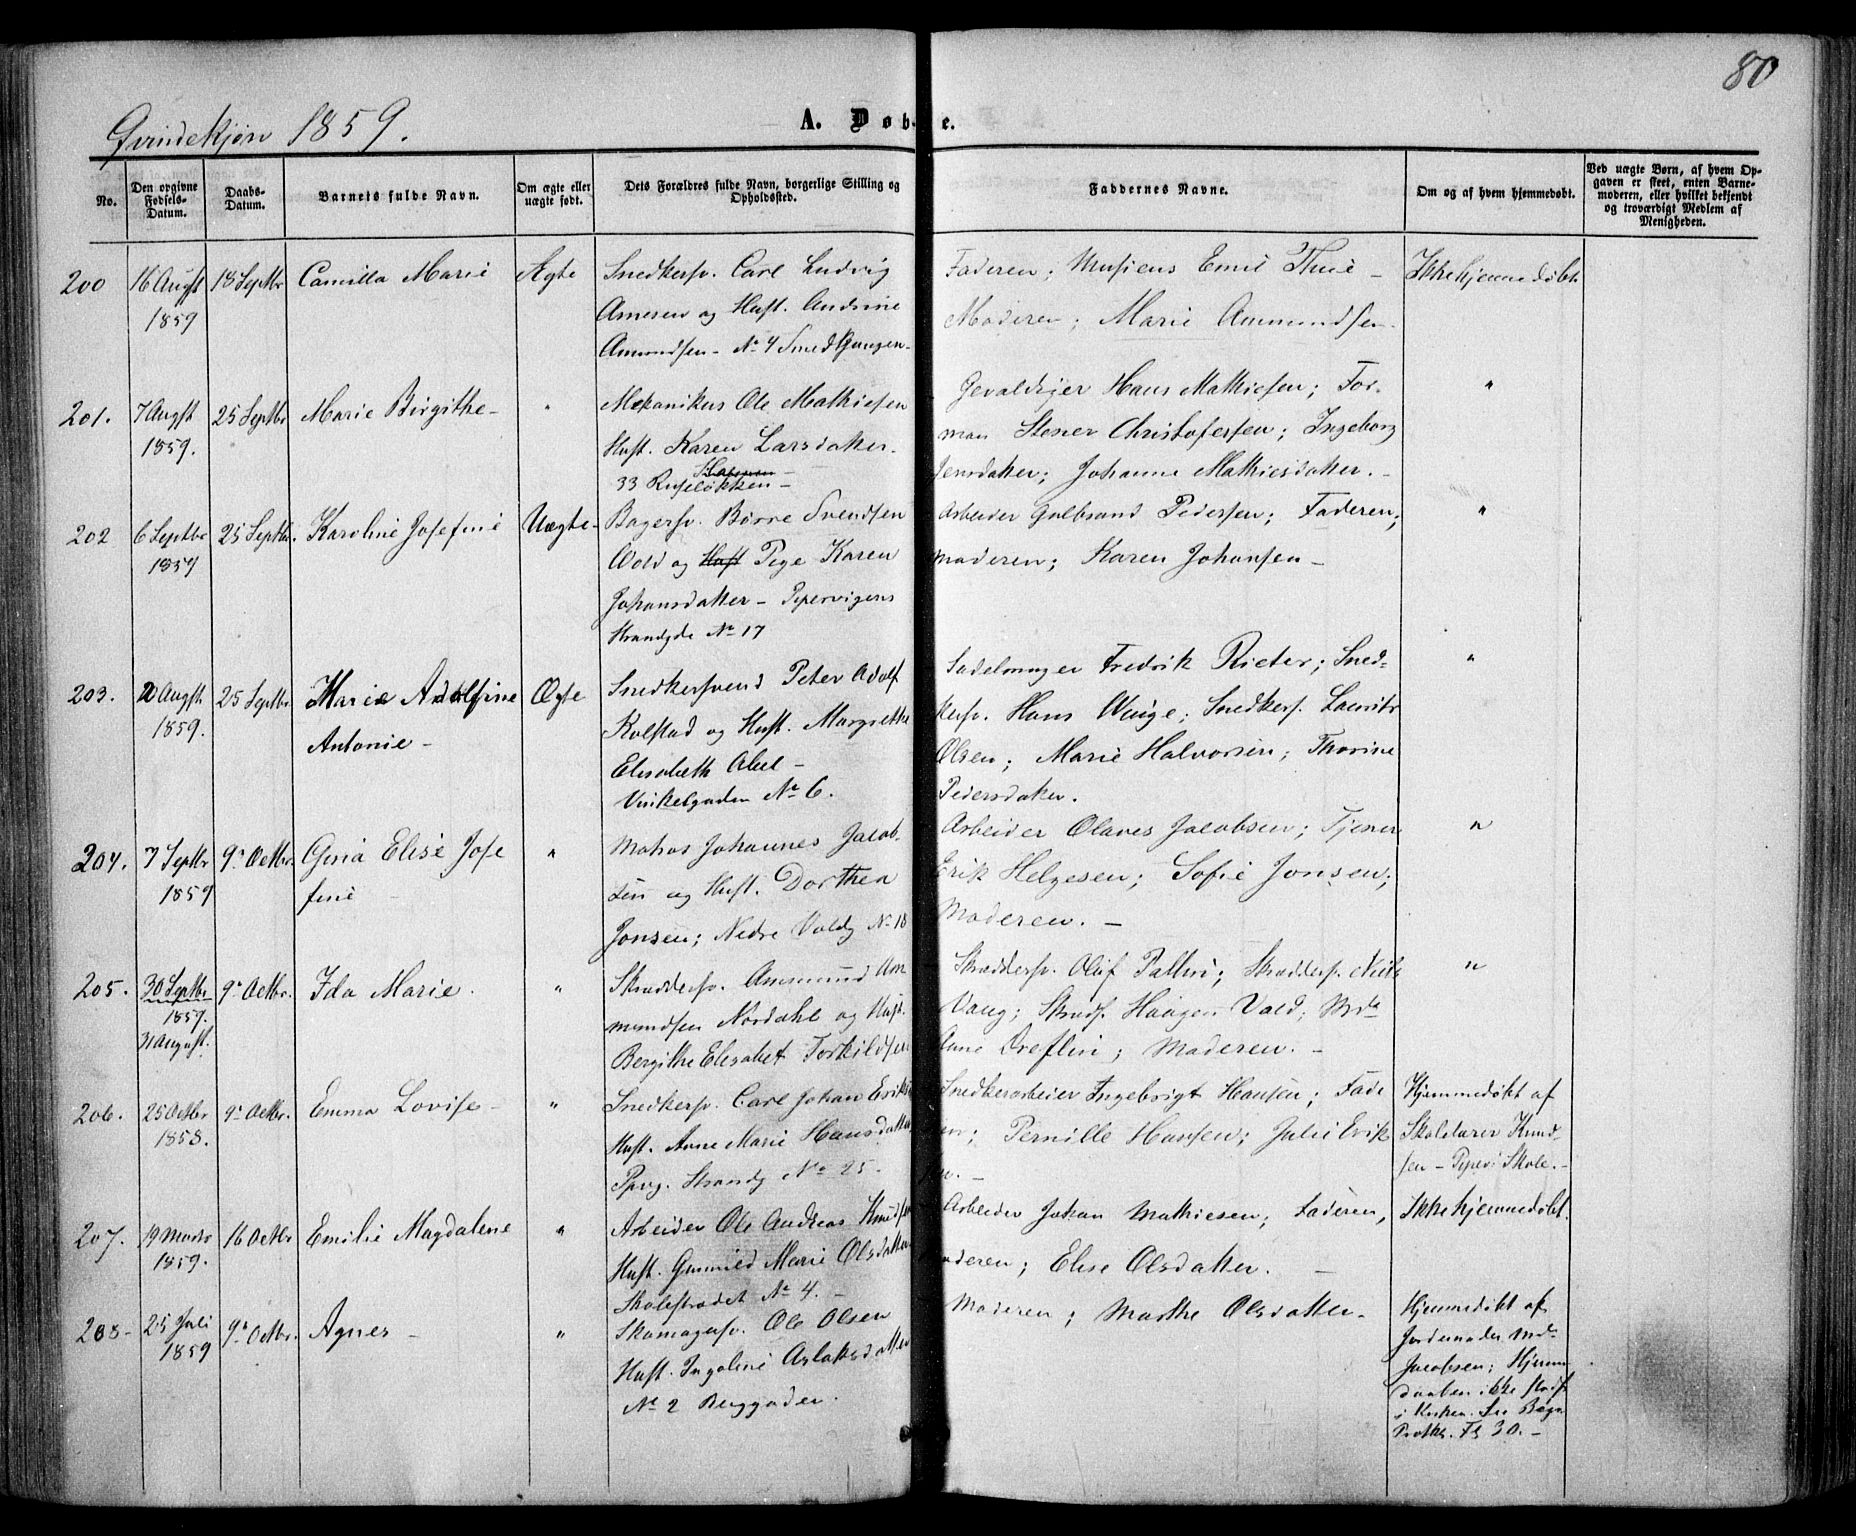 80
Qvindekjøn 1859.
A. Døb e.
No.
Den opgivne Fødsels-Datum.
Daabs-Datum.
Barnets fulde Navn.
Om ægte eller uægte født.
Dets Forældres fulde Navn, borgerlige Stilling og Opholdssted.
Faddernes Navne.
Om og af hvem hjemmedøbt.
Ved uægte Børn, af hvem Opgaven er skeet, enten Barnemoderen, eller hvilket bekjendt og troværdigt Medlem af Menigheden.
200 16 Augst 18 Septbr Camilla Marie Ægte Snedkersv. Carl Ludvig Faderen; Musicus Emil Thue – Ikke hjemmedøbt
1859 Arnesen og Hust. Andrine Moderen; Marie Ammundsen.
Amundsen – No 4 Smedgangen –
201. 7 Augst 25 Septbr Marie Birgithe – " Mekanikus Ole Mathiesen Gevaldiger Hans Mathiesen; For- "
1859. Hust. Karen Larsdatter. man Stener Christofersen; Ingeborg
33 Ruseløkken – Jensdatter; Johanne Mathiesdatter. –
202 6 Septbr 25 Septbr. Karoline Josefine Uægte – Bagersv. Børre Svendsen Arbeider Gulbrand Pedersen; Faderen; "
1859 Wold og Hust Pige Karen Moderen; Karen Johansen –
Johansdatter – Pipervigens
Strandgde No 17
203. 20 Augst 25 Septbr. Marie Adolfine Ægte Snedkersvend Peter Adolf Sadelmager Fredrik Rieter; Sned- "
1859. Antonie – Kolstad og Hust. Margrethe kersv. Hans Winge; Snedkers. Laurits
Elisabeth Abel – Olsen; Marie Halvorsen; Thorine
Vinkelgaden No 6. Pedersdatter.
204. 7 Septbr 9. Octbr. Gina Elise Jose " Matros Johannes Jacob- Arbeider Olaves Jacobsen; Tjener "
1859 fine – sen og Hust. Dorthea Erik Helgesen; Sofie Jonsen;
Jonsen; Nedre Voldg No 18 Moderen. –
205. 30 Septbr. 9. Octbr. Ida Marie. " Skræddersv. Ammund Am Skræddersv. Oluf Pallin; Skræddersv. "
1859. mundsen Nordahl og Hust. Vang; Skræds. Haagen Vald; Md.
31 August. Bergithe Elisabet Torkildsen Moderen. –
206. 25 Octbr 9. Octbr. Emma Lovise – " Snedkersv. Carl Johan Eriks Snedkerarbeier Ingebrigt Hansen; Fade Hjemmedøbt af
1858. Hust. Anne Marie Hansdatter ren; Pernille Hansen; Julie Erik Skolelærer Knud-
Ppvg. Strandg No 25. sen – Piperv. Skole. –
207. 19 Marts 16 Octbr Emilie Magdalene " Arbeider Ole Andreas Knudsen Arbeider Johan Mathiesen; Faderen, Ikke hjemmedøbt.
1859. Hust. Gunnild Marie Olsdatter Moderen; Elise Olsdatter. –
Skolestrædet No 4. –
208 – 25 Juli 9. Octbr. Agnes – " Skomagersv. Ole Olsen Moderen; Marthe Olsdatter – Hjemmedøbt af
1859 Hust. Ingeline Aslaksdatter Jordemoder Md.
No 2 Berggaden. Jacobsen; Hjemme
daaben ikke stadf.
i Kirken. See Begr.
Protkl. Fs 30. –